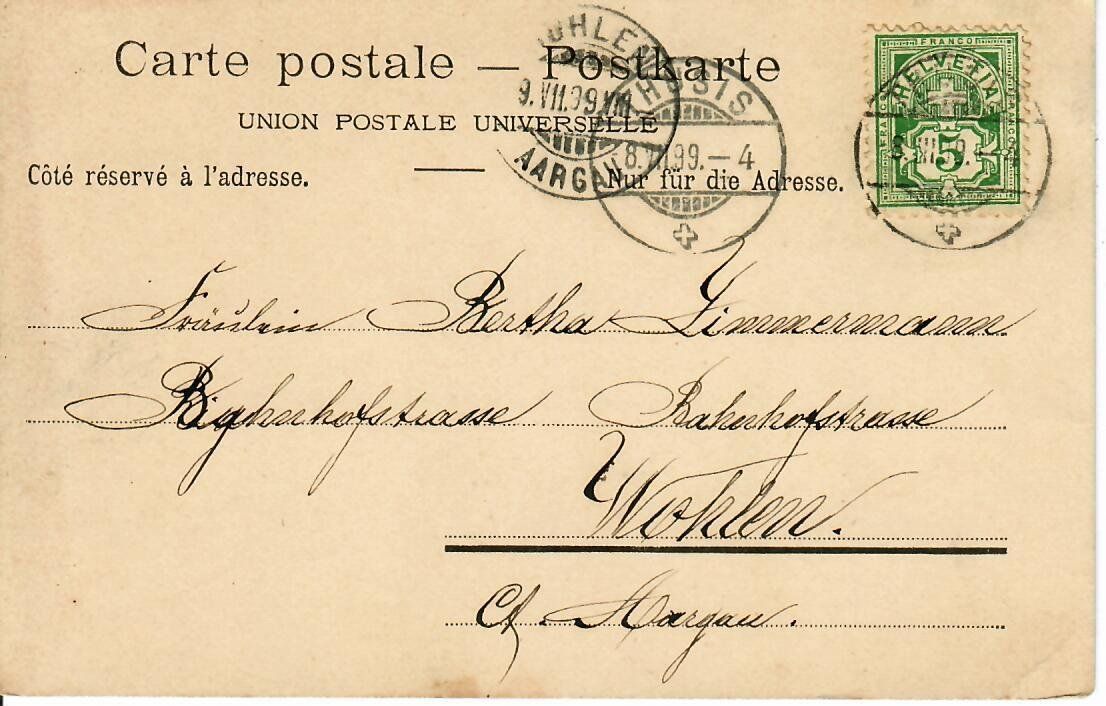 Carte postale — Postkarte
UNION POSTALE UNIVERSELLE
Côté réservé à l'adresse. — Nur für die Adresse.
WOHLEN
9.VII.99.VIII
AARGAU
THUSIS
8.VII.99.–4
FRANCO
HELVETIA
5
Fräulein Bertha Zimmermann
Bahnhofstrasse Bahnhofstrasse
Wohlen.
Ct. Aargau.